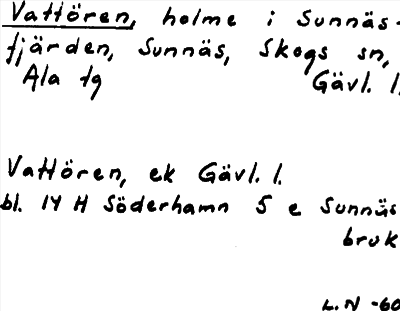 Vattören, holme i Sunnäs-
fjärden, Sunnäs, Skogs sn,
Ala tg Gävl. l.
Vattören, ek Gävl. l.
bl. 14 H Söderhamn 5 e Sunnäs
bruk
L. N -60